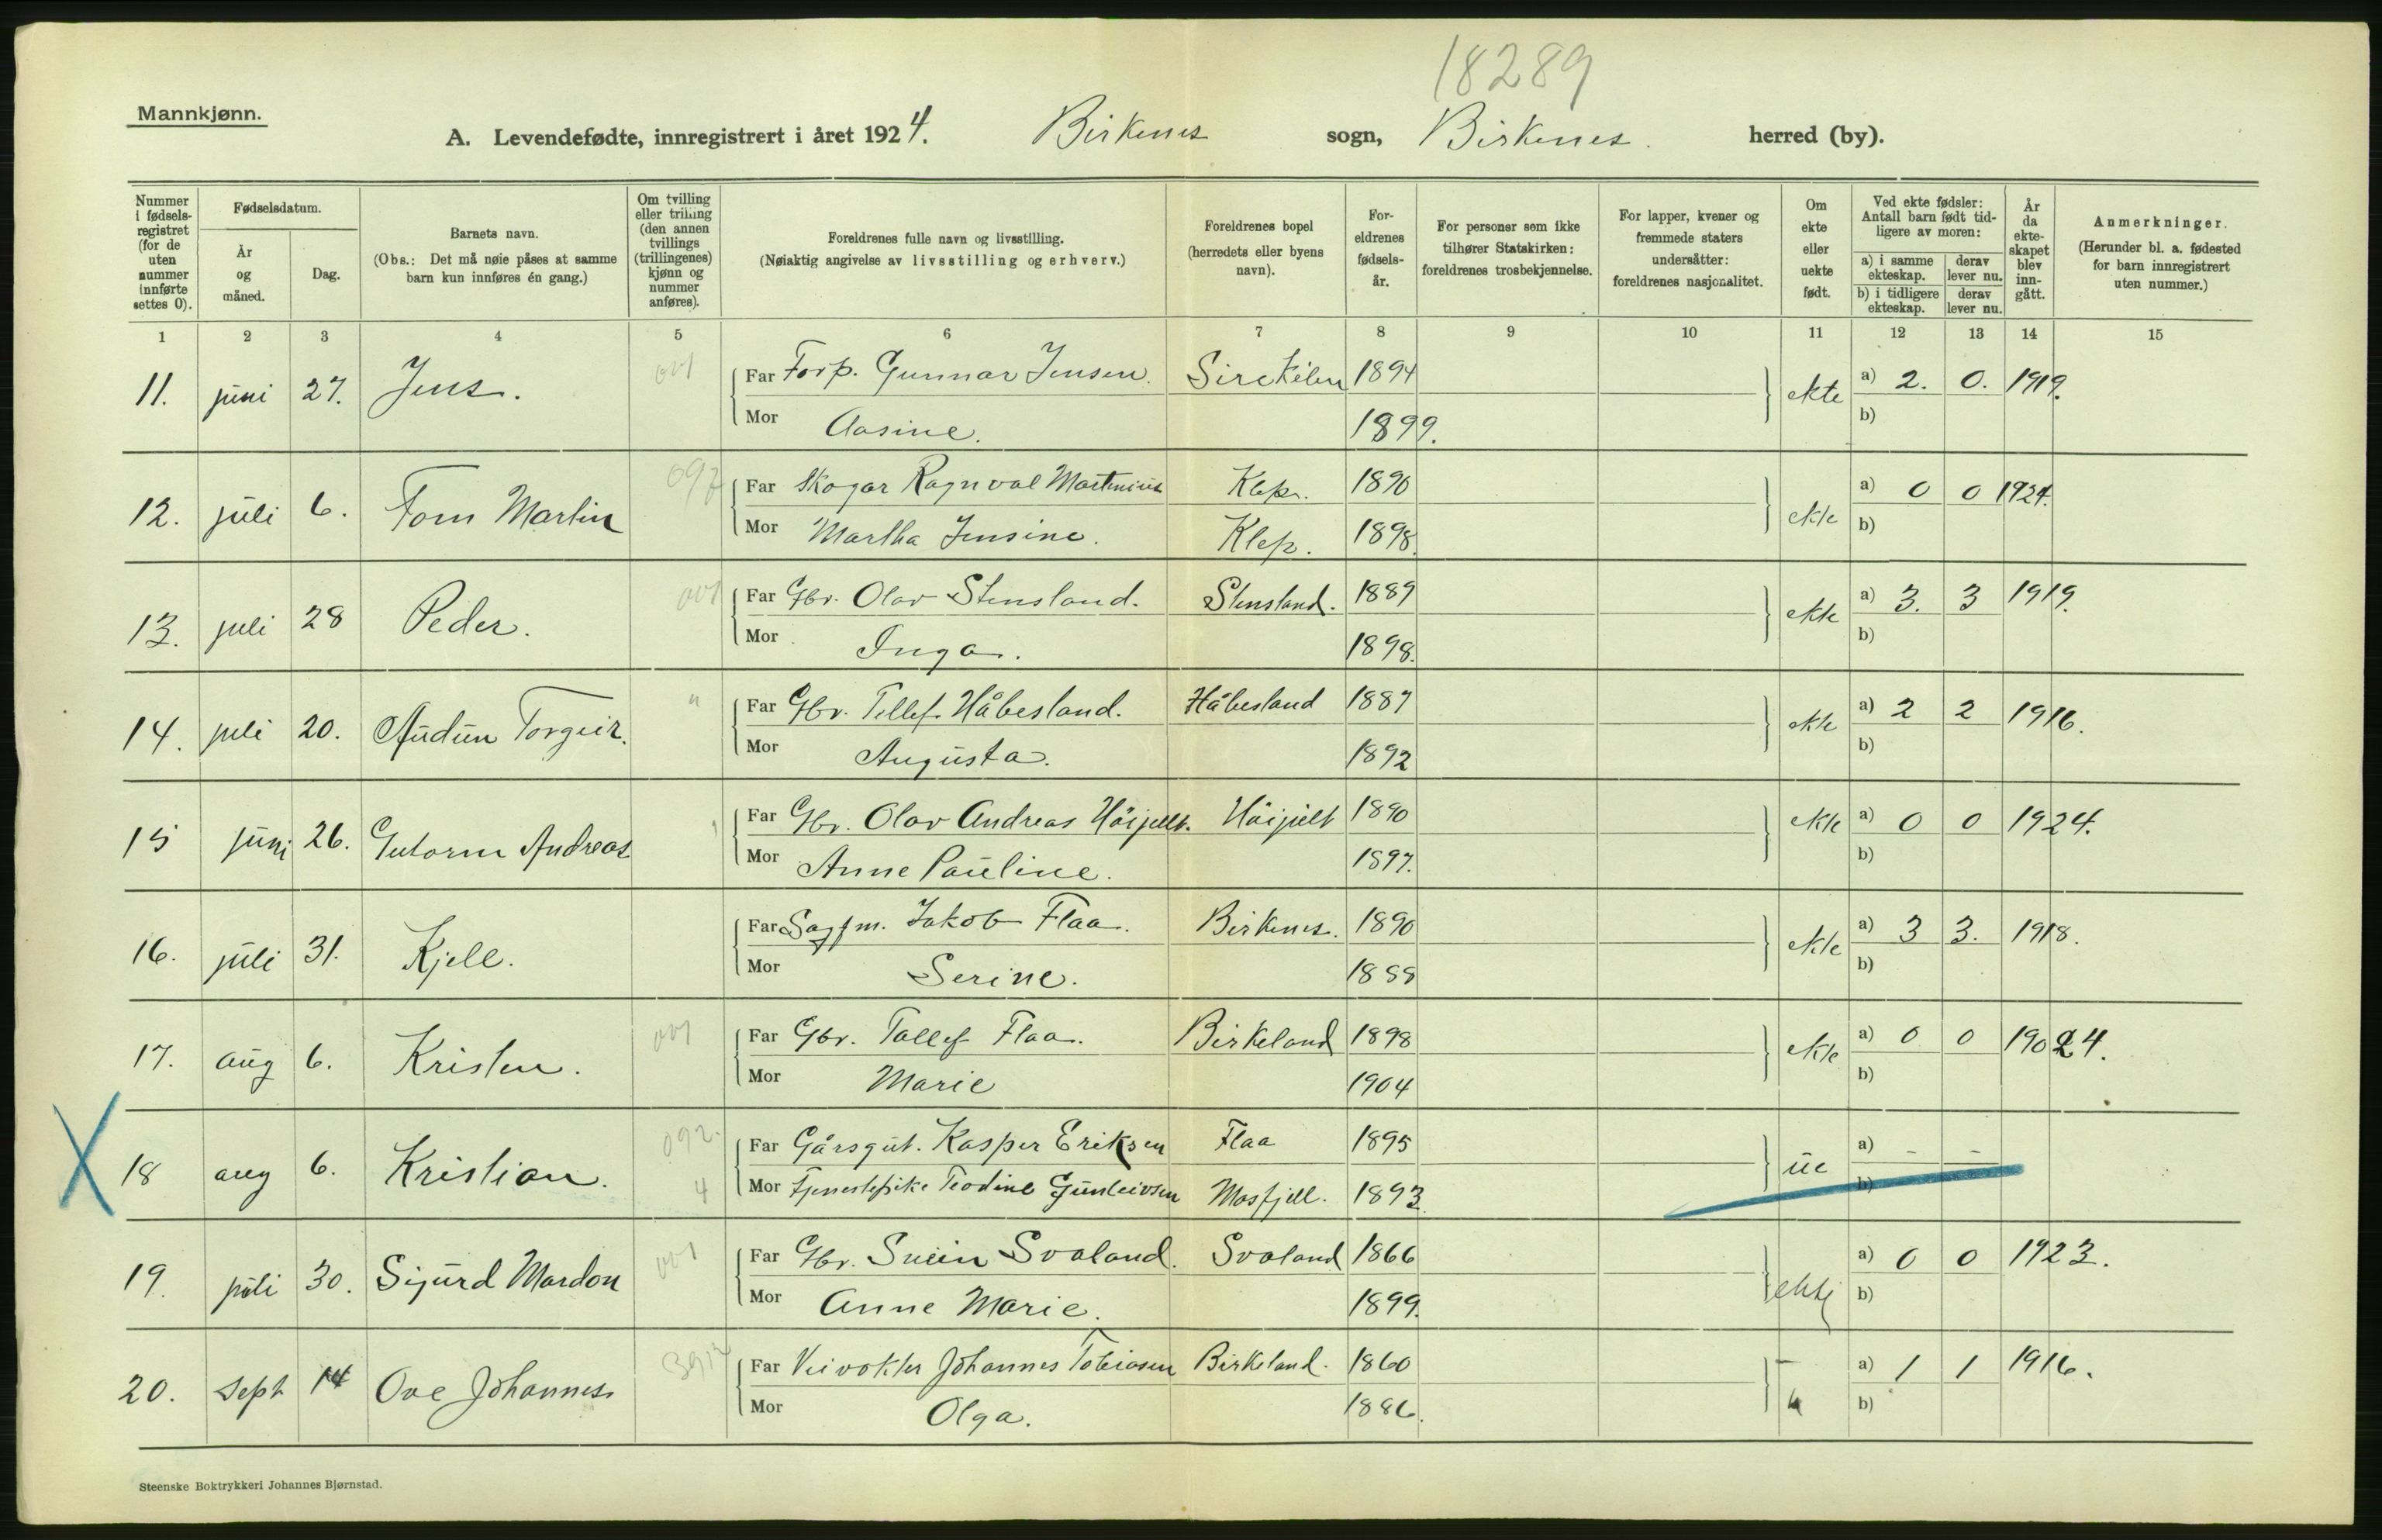 18289
Mannkjønn.
A. Levendefødte, innregistrert i året 1924. Birkenes sogn, Birkenes. herred (by).
Nummer i fødsels-registret (for de uten nummer innførte settes 0).
Fødselsdatum.
År og måned.
Dag.
Barnets navn.
(Obs.: Det må nøie påses at samme barn kun innføres én gang.)
Om tvilling eller trilling (den annen tvillings (trillingenes) kjønn og nummer anføres).
Foreldrenes fulle navn og livsstilling.
(Nøiaktig angivelse av livsstilling og erhverv.)
Foreldrenes bopel (herredets eller byens navn).
For-eldrenes fødsels-år.
For personer som ikke tilhører Statskirken: foreldrenes trosbekjennelse.
For lapper, kvener og fremmede staters undersåtter: foreldrenes nasjonalitet.
Om ekte eller uekte født.
Ved ekte fødsler: Antall barn født tid-ligere av moren:
a) i samme ekteskap. derav lever nu.
b) i tidligere ekteskap. derav lever nu.
År da ekte-skapet blev inn-gått.
Anmerkninger.
(Herunder bl. a. fødested for barn innregistrert uten nummer.)
1 2 3 4 5 6 7 8 9 10 11 12 13 14 15
11. juni 27. Jens. 001 Far Forp. Gunnar Jensen. 1894 ekte a) 2. 0. 1919.
Mor Aasine. 1899. b)
12. juli 6. Tom Martin 092 Far Skogar Ragnval Martinius Klep. 1890 ekte a) 0 0 1924.
Mor Martha Jensine. Klep. 1898. b)
13. juli 28 Peder. 001 Far Gbr. Olav Stensland. Stensland. 1889 ekte a) 3. 3 1919.
Mor Inga. 1898. b)
14. juli 20. Audun Torgeir. " Far Gbr. Tellef Håbesland. Håbesland 1887 ekte a) 2 2 1916.
Mor Augusta. 1892 b)
15 juni 26. Gutorm Andreas Far Gbr. Olav Andreas 1890 ekte a) 0 0 1924.
Mor Anne Pauline. 1897. b)
16. juli 31. Kjell. Far Sagfm. Jakob Flaa. Birkenes. 1890 ekte a) 3 3. 1918.
Mor Serine. 1888 b)
17. aug 6. Kristen. 001 Far Gbr. Tallef Flaa. Birkeland 1898 ekte a) 0 0 1924.
Mor Marie 1904 b)
X 18 aug 6. Kristian. 092. Far Gårsgut. Kasper Eriksen Flaa 1895 ue a) - -
4 Mor Tjenestepike Teodine Gunleivsen Mosfjell. 1893. b)
19. juli 30. Sigurd Mardon 001 Far Gbr. Svein Svaland. Svaland 1866 ekte a) 0 0 1923.
Mor Anne Marie. 1899. b)
20. sept 14 Ove Johannes Far Veivokter Johannes Tobiasen Birkeland. 1860 a) 1 1 1916.
Mor Olga. 1886. b)
Steenske Boktrykkeri Johannes Bjørnstad.